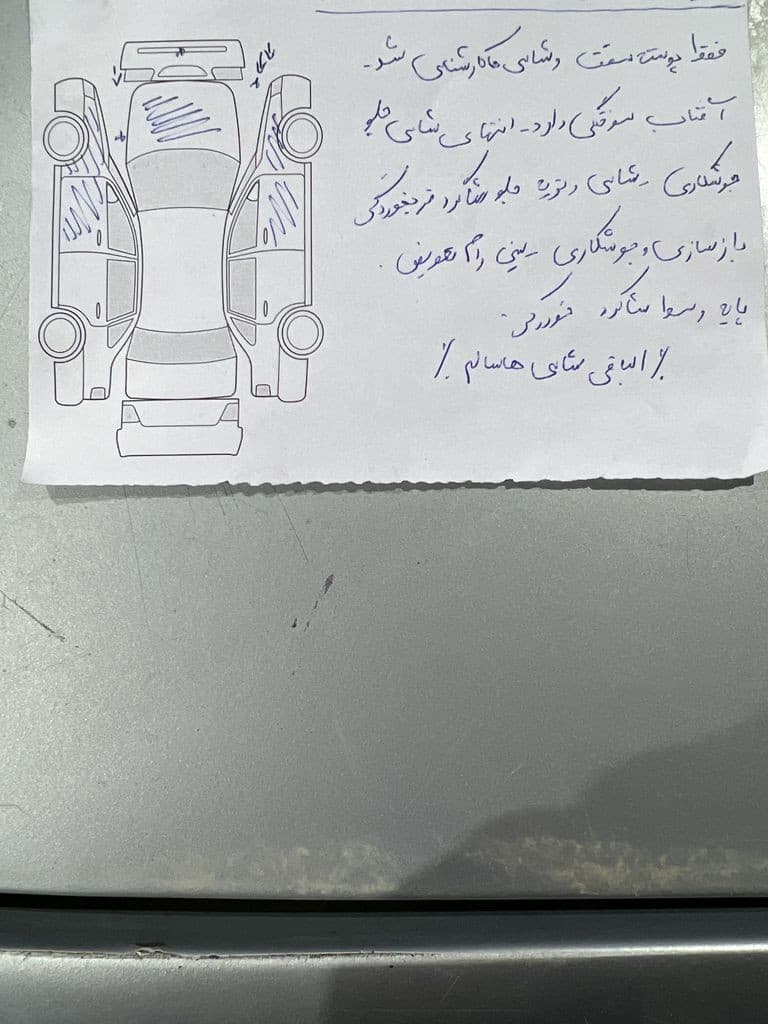 فقط پوسته سقف و شاسی ها کارشناسی شد.
آفتاب سوختگی دارد - انتهای شاسی جلو
جوشکاری - شاسی و تویه جلو شاگرد
بازسازی و جوشکاری - سینی رام تعویض.
پایه و شاگرد خوردگی.
٪ الباقی شاسی ها سالم ٪